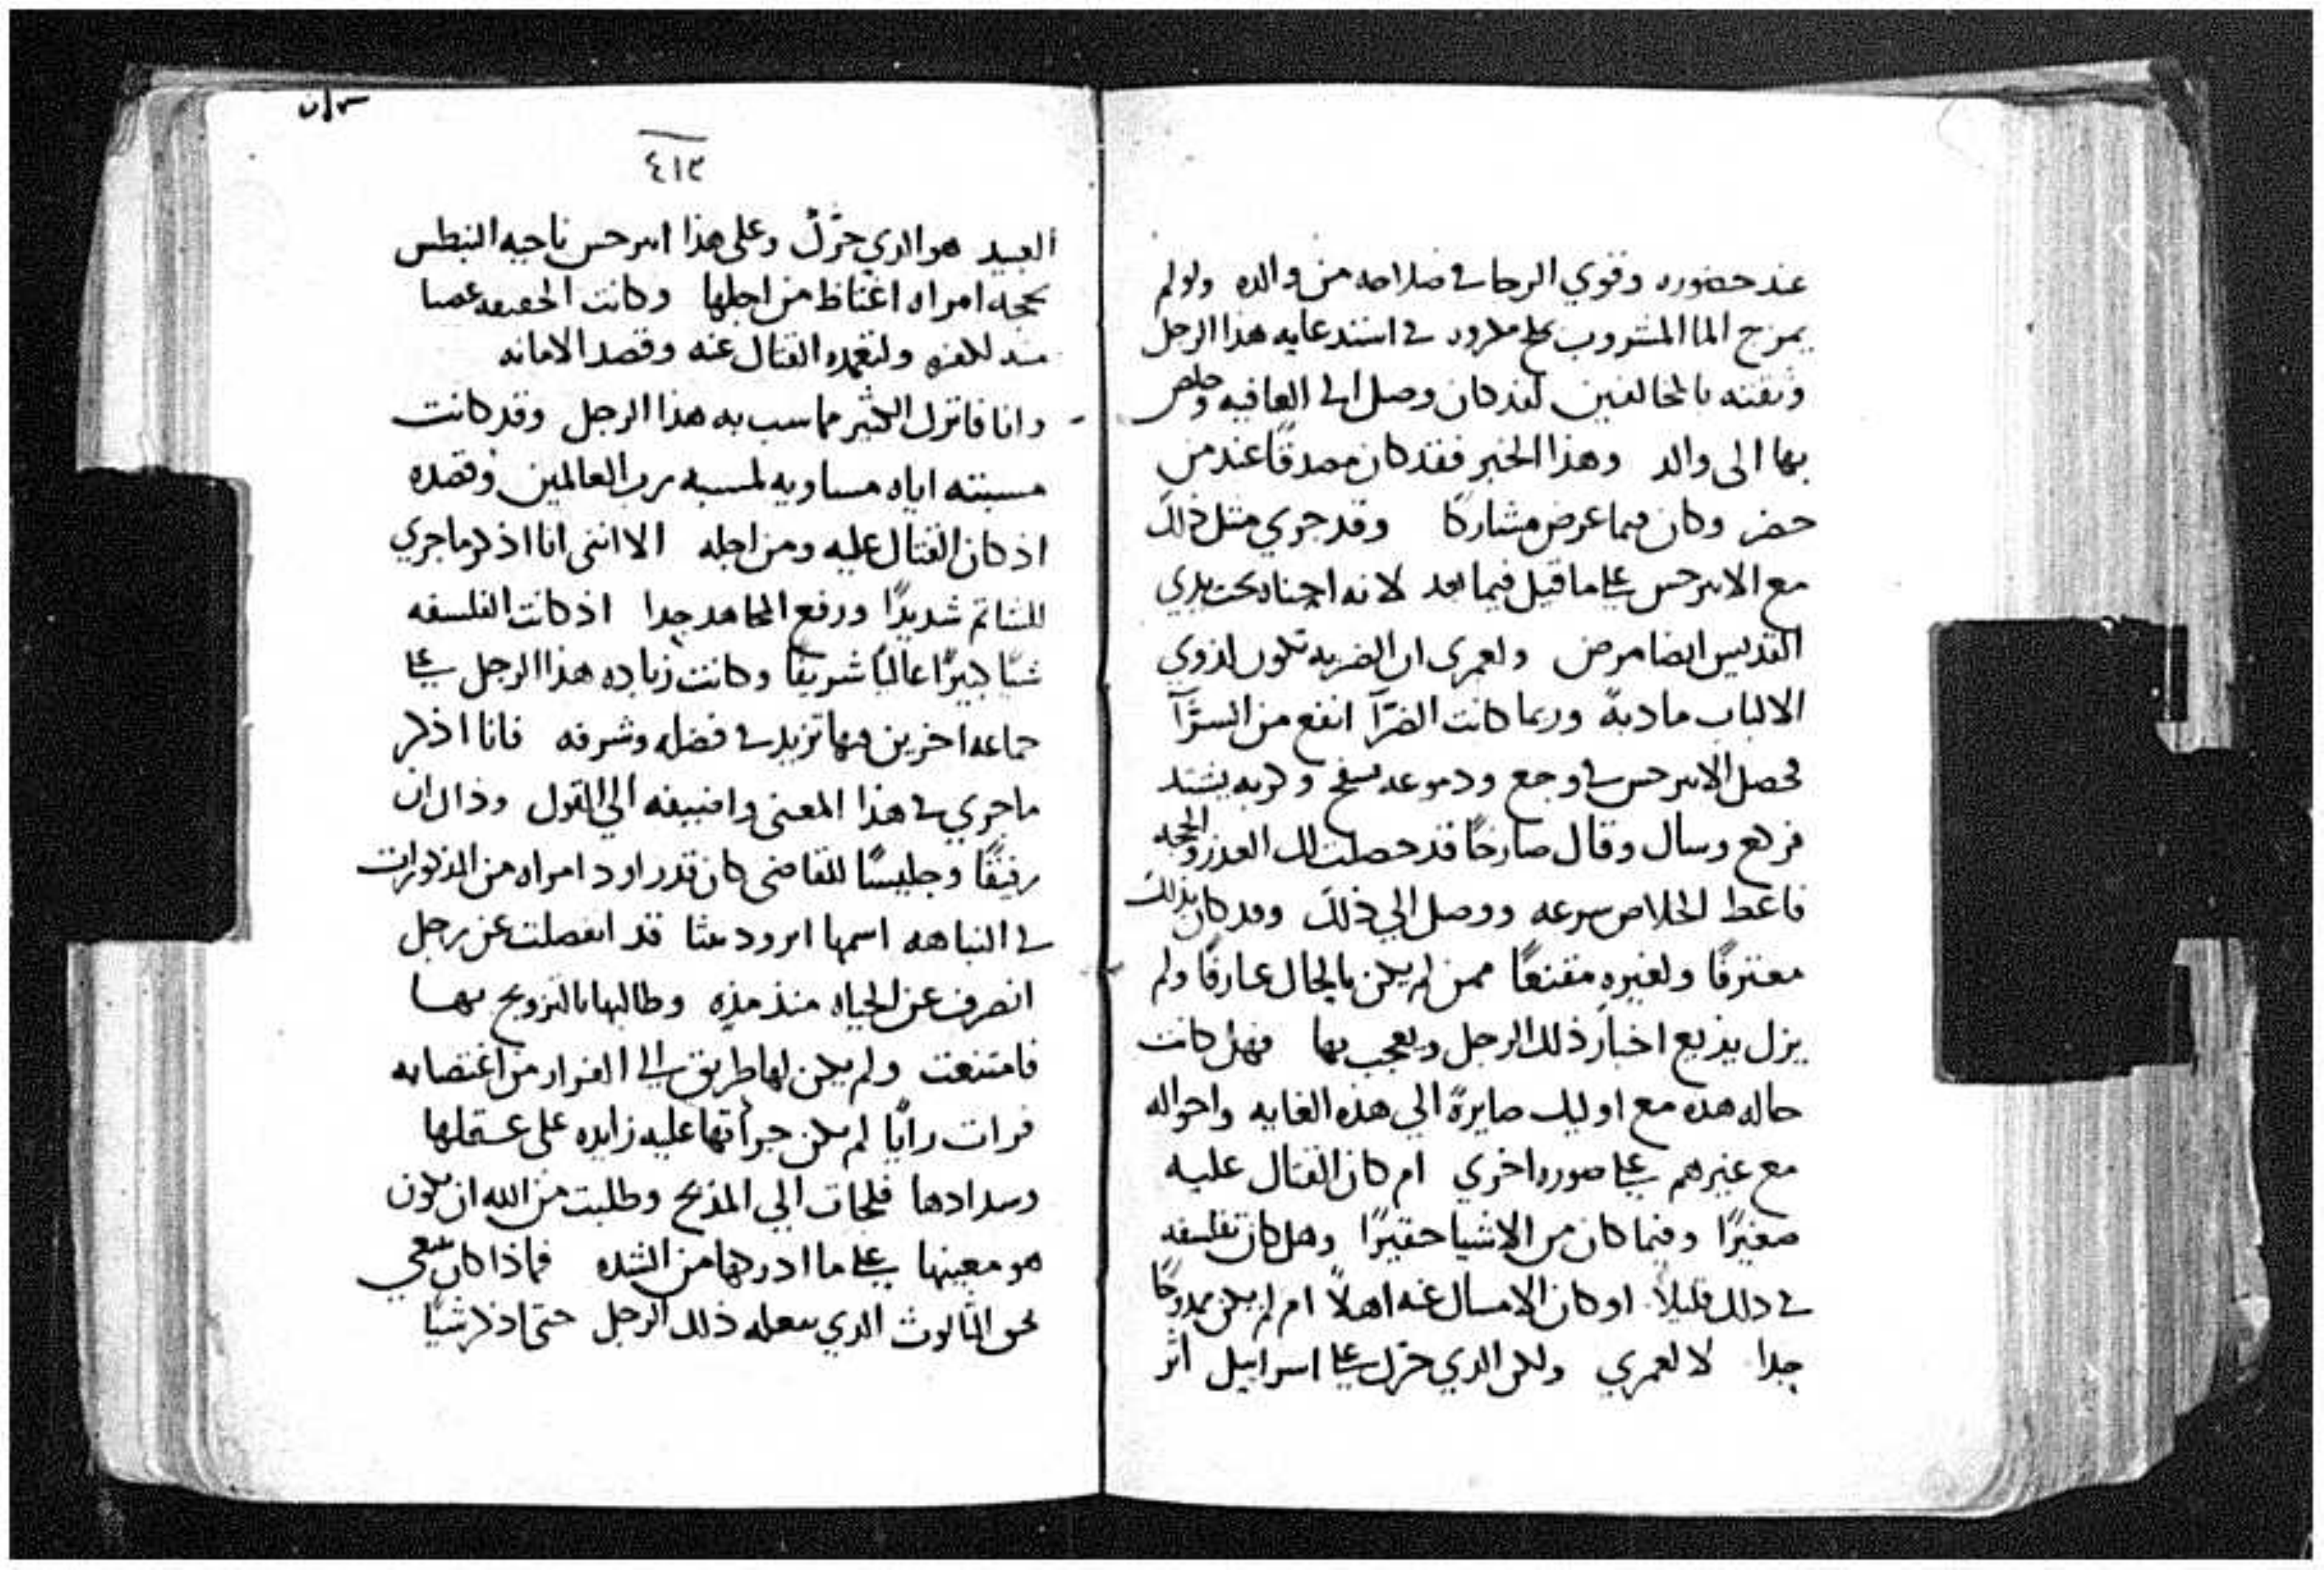 عند حضوره وقوي الرجا في صلاحه من والده ولو لم
يمزج الما المشروب بملح في استدعايه هذا الرجل
وثقته بالمخالفين لقد كان وصل الي العافيه وخلص
بها الى والد وهذا الخبر فقد كان مصدقًا عند من
حضر وكان فيما عرض مشاركًا وقد جري مثل ذلك
مع الابرحس علي ما قيل فيما بعد لانه اجتاه تحت يدي
القديس ايضا مرض ولعمرى ان الضربه تكون لذوي
الالباب مادبة وربما كانت الضرّآ انفع من السرّآ
فحصل الابرحس في وجع ودموعه تسفح وكربه يشتد
فرفع وسال وقال صارخًا قد حصلت لك العذر والحجه
فاعط الخلاص سرعه ووصل الي ذلك وقد كان بذلك
معترفًا ولغيره مقنعًا ممن لم يكن بالحال عارفًا ولم
يزل يذيع اخبار ذلك الرجل ويعجب بها فهل كانت
حاله هذه مع اوليك صايرةً الي هذه الغايه واحواله
مع غيرهم علي صوره اخري ام كان القتال عليه
صغيرًا وفيما كان من الاشيا حقيرًا وهل كان تفلسفه
في ذلك قليلاً او كان الامسال عنه اهلاً ام لم يكن ممدوحًا
جدا لا لعمري ولكن الدي حرك علي اسراييل اثر
٤١٣
العبيد هو الدي حرّك وعلى هذا ابرحس ناحيه البنطس
بحجه امراه اغتاظ من اجلها وكانت الحقيقه عصبا
القتال عنه وقصد الامانه
وانا فاترك الكثير مما سب به هذا الرجل وقد كانت
مسبته اياه مساويه لمسبه رب العالمين وقصده
اذ كان القتال عليه ومن اجله الا اننى انا اذكر ما جري
للشاتم شديدًا ورفع المجاهد جدا اذ كانت الفلسفه
شيًا كبيرًا عاليًا شريفًا وكانت زياده هذا الرجل علي
جماعه اخرين فيها تزيد في فضله وشرفه فانا اذكر
ما جري في هذا المعنى واضيفه الي القول وذاك ان
رفيقًا وجليسًا للقاضى كان قد راود امراه من المذكورات
في النباهه اسمها قد انفصلت عن رجل
انصرف عن الحياه منذ مده وطالبها بالتزويج بها
فامتنعت ولم يكن لها طريق الي الفرار من اغتصابه
فرات رايًا لم يكن جراتها عليه زايده على عقلها
وسدادها فلجات الي المذبح وطلبت من الله ان يكون
هو معينها علي ما ادركها من الشده فماذا كان ينبغي
بحق الثالوث الدي يفعله ذلك الرجل حتى اذكر شيًا